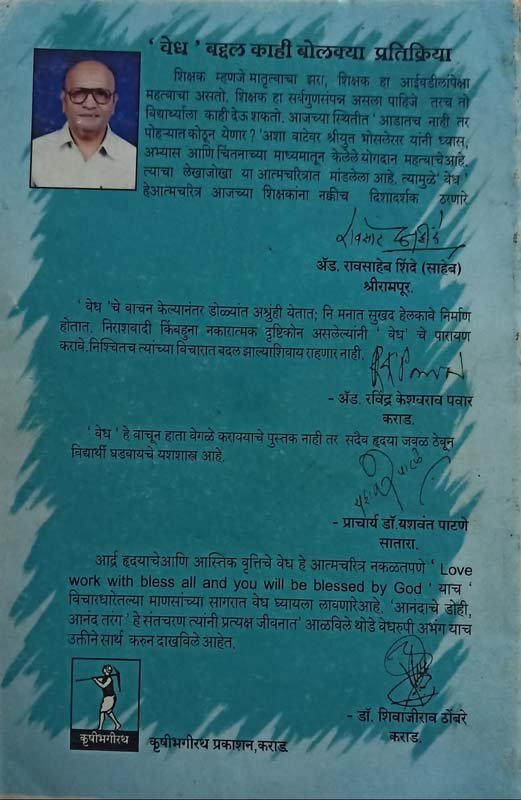 ‘ वेध ’ बद्दल काही बोलक्या प्रतिक्रिया
शिक्षक म्हणजे मातृत्वाचा झरा, शिक्षक हा आईवडीलांपेक्षा
महत्वाचा असतो. शिक्षक हा सर्वगुणसंपन्न असला पाहिजे तरच तो
विद्यार्थ्याला काही देऊ शकतो. आजच्या स्थितीत ‘ आडातच नाही तर
पोहऱ्यात कोठून येणार ? ‘अशा वाटेवर श्रीयुत भोसलेसर यांनी ध्यास,
अभ्यास आणि चिंतनाच्या माध्यमातून केलेले योगदान महत्वाचे आहे.
त्याचा लेखाजोखा या आत्मचरित्रात मांडलेला आहे. त्यामुळे ‘ वेध ’
हेआत्मचरित्र आजच्या शिक्षकांना नक्कीच दिशादर्शक ठरणारे
- ॲड. रावसाहेब शिंदे (साहेब)
श्रीरामपूर.
‘ वेध ’चे वाचन केल्यानंतर डोळ्यांत अश्रुंही येतात; नि मनात सुखद हेलकावे निर्माण
होतात. निराशवादी किंबहुना नकारात्मक दृष्टिकोन असलेल्यांनी ‘ वेध’ चे पारायण
करावे.निश्चितच त्यांच्या विचारात बदल झाल्याशिवाय राहणार नाही.
- ॲड. रविंद्र केशवराव पवार
कराड.
‘ वेध ’ हे वाचून हाता वेगळे करावयाचे पुस्तक नाही तर सदैव हृदया जवळ ठेवून
विद्यार्थी घडवायचे यशशास्त्र आहे.
- प्राचार्य डॉ.यशवंत पाटणे
सातारा.
आर्द्र हृदयाचेआणि आस्तिक वृत्तिचे वेध हे आत्मचरित्र नकळतपणे ‘ Love
work with bless all and you will be blessed by God ’ याच ‘
विचारधारेतल्या माणसांच्या सागरात वेध घ्यायला लावणारेआहे. ‘आनंदाचे डोही,
आनंद तरग ’ हे संतचरण त्यांनी प्रत्यक्ष जीवनात’ आळविले थोडे वेधरुपी अभंग याच
उक्तीने सार्थ करुन दाखविले आहेत.
- डॉ. शिवाजीराव ठोंबरे
कराड.
कृषीभगीरथ
कृषीभगीरथ प्रकाशन,कराड.